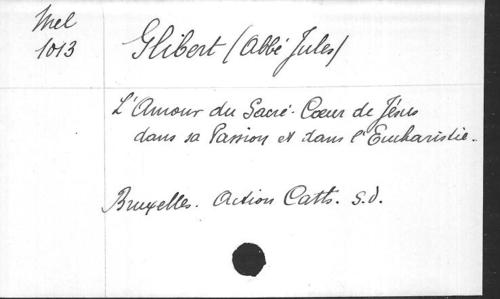 Mel
1013
Glibert (Abbé Jules)
L'Amour du Sacré-Cœur de Jésus
dans sa Passion et dans l'Eucharistie.
Bruxelles. Action Cath. s.d.